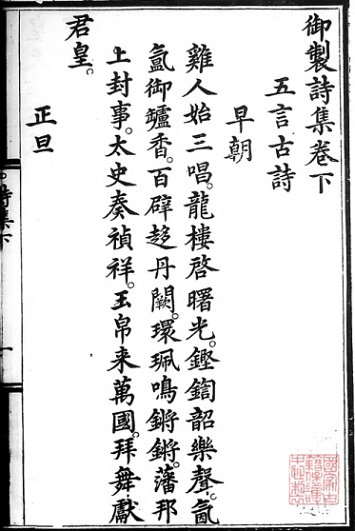 御製詩集卷下
五言古詩
早朝
雞人始三唱。龍樓啓曙光。鏗鍧韶樂聲。氤
氳御爐香。百辟趍丹闕。環珮鳴鏘鏘。藩邦
上封事。太史奏禎祥。玉帛来萬國。拜舞獻
君皇。
正旦